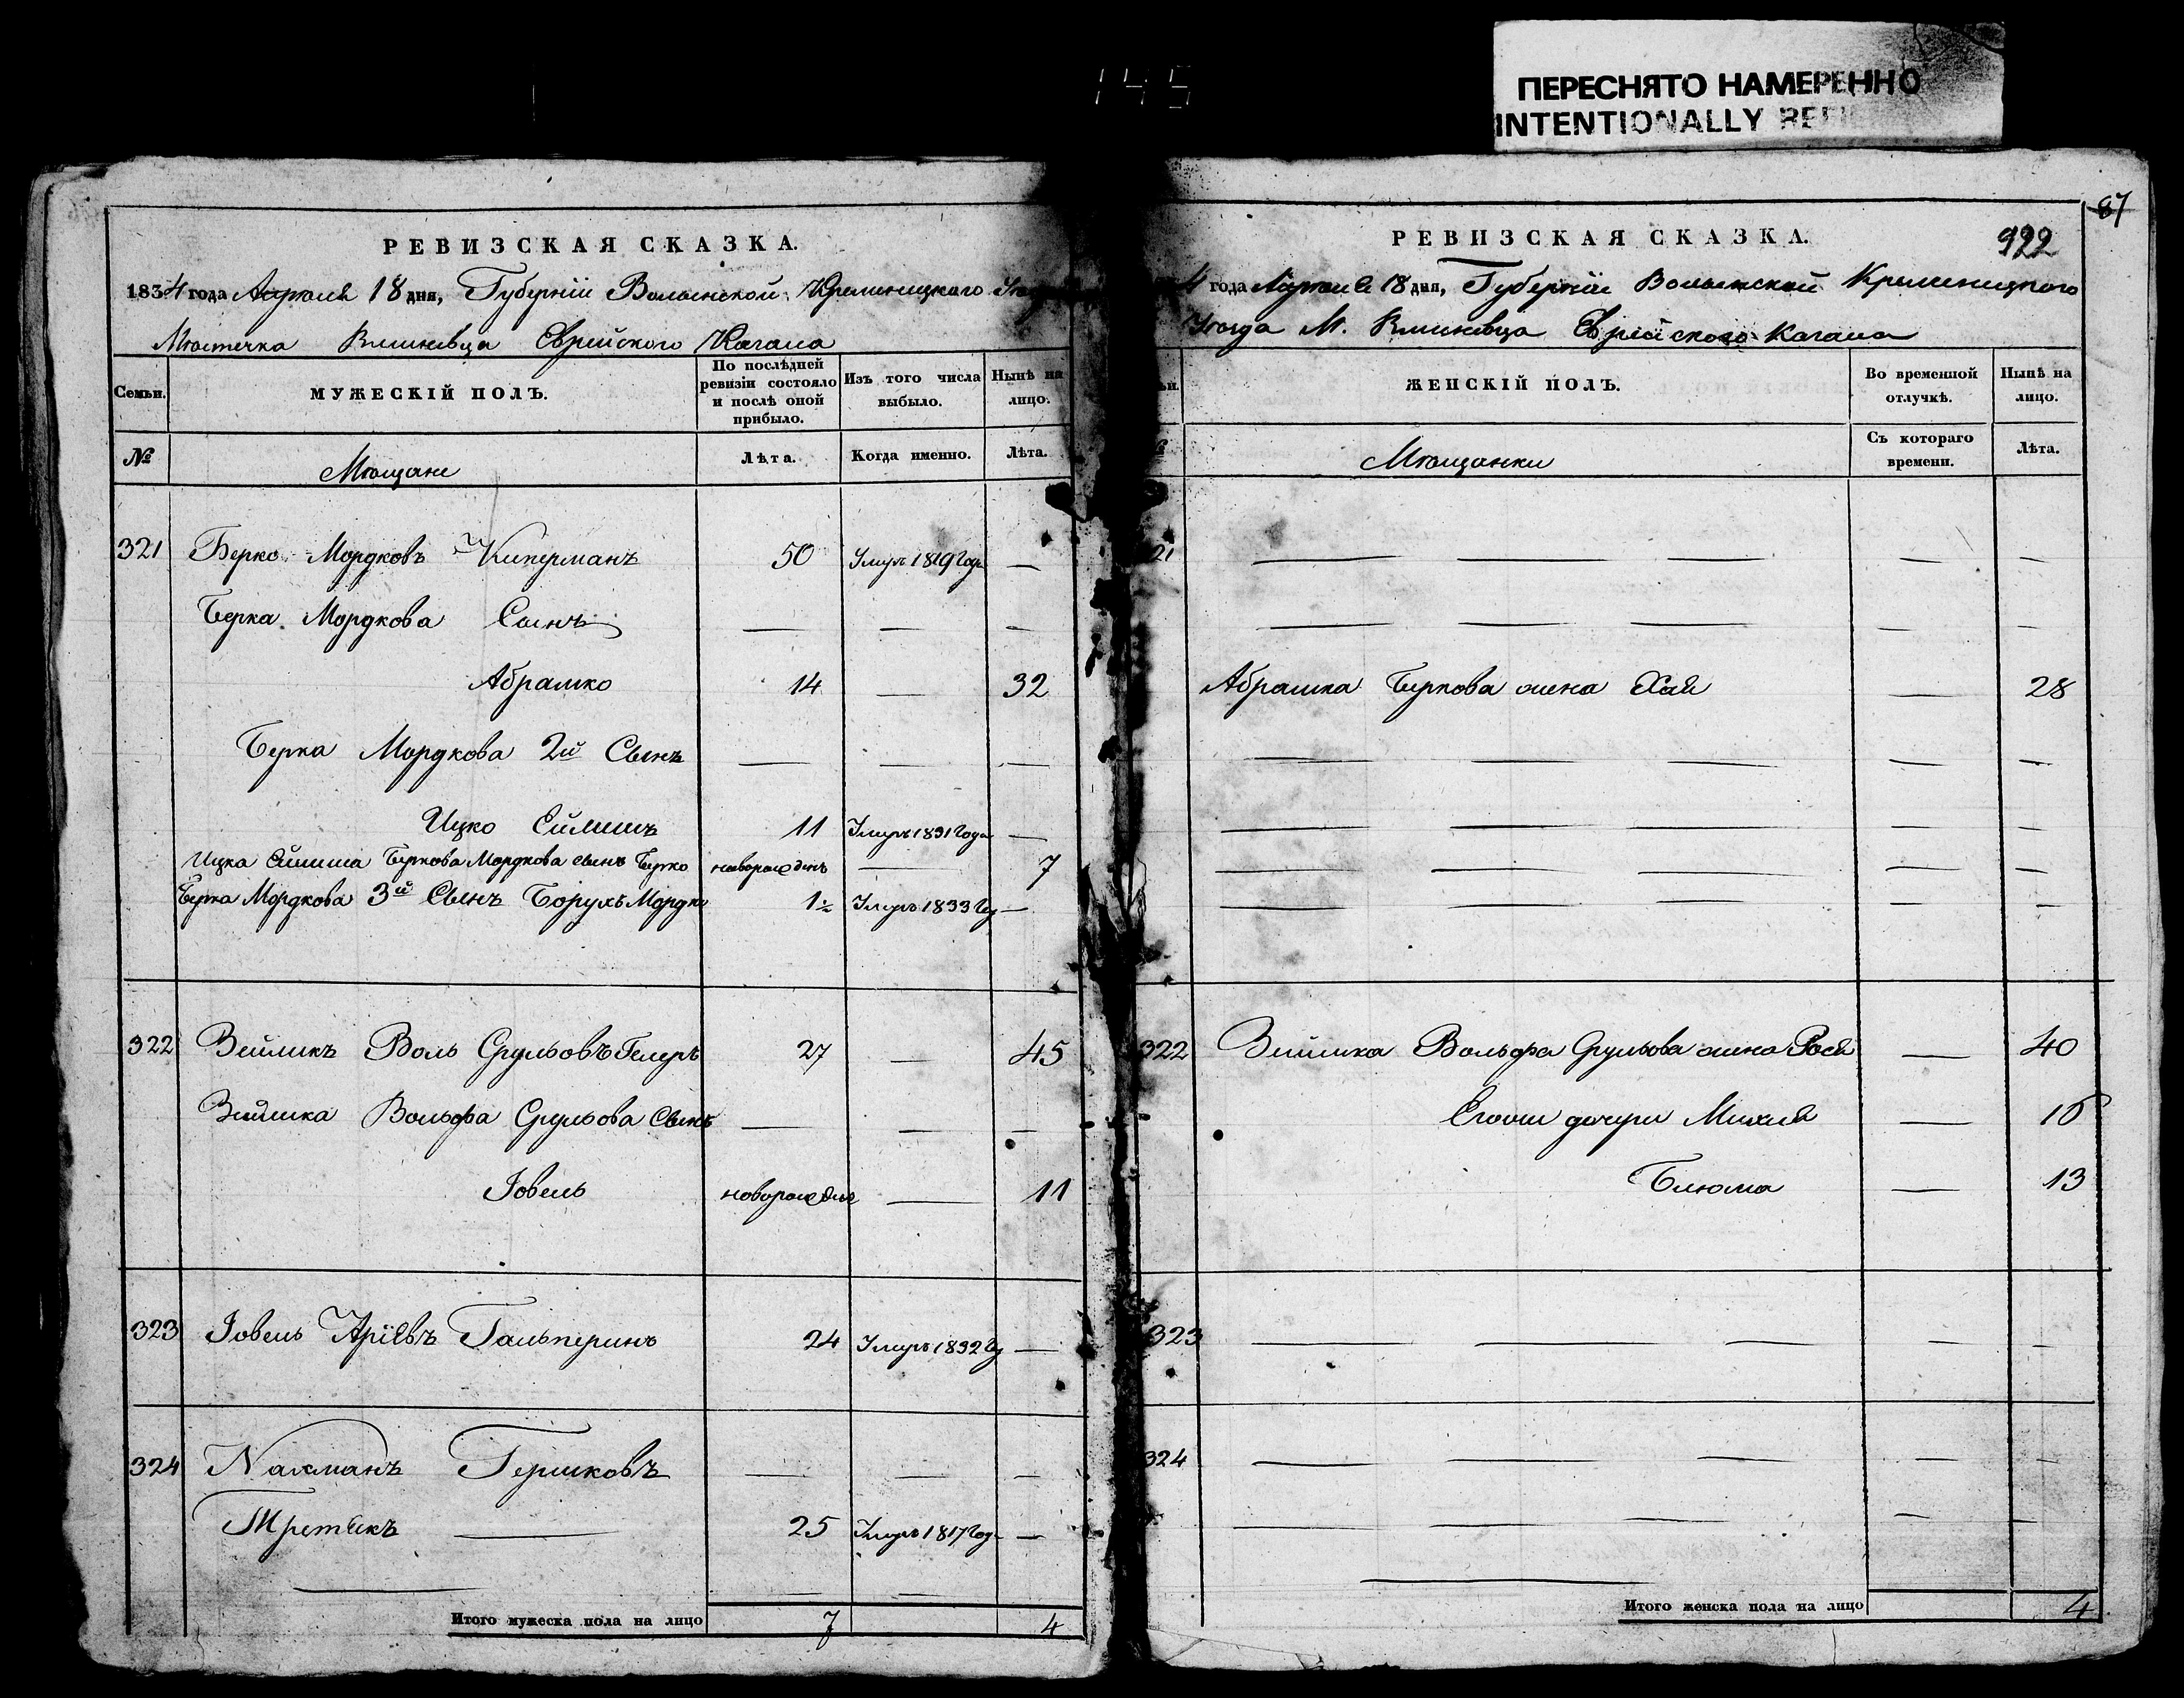 145
ПЕРЕСНЯТО НАМЕРЕННО
INTENTIONALLY
РЕВИЗСКАЯ СКАЗКА.
1834 года Апреля 18 дня, Губернїи Волынской Кременицкого
Мѣстечка Еврейского Кагала
Семьи.
МУЖЕСКІЙ ПОЛЪ.
По послѣдней ревизіи состояло и послѣ оной прибыло.
Изъ того числа выбыло.
Нынѣ на лицо.
№
Мѣщане
Лѣта.
Когда именно.
Лѣта.
321 Берко Мордковъ Киперманъ 50 Умеръ 1819 Года —
Берка Мордкова Сынъ — — —
Абрамко 14 — 32
Берка Мордкова 2й Сынъ — — —
Ицко 11 Умеръ 1831 Года —
Ицка Беркова Мордкова сынъ Берко новорожденъ — 7
Берка Мордкова 3й Сынъ Борухъ Мордко 1½ Умеръ 1833 Год —
322 Зейликъ Воль Срульовъ Гелеръ 27 — 45
Зейлика Вольфа Срульова Сынъ — — —
Іовель новорожден — 11
323 Іовель Арїевъ Гальперинъ 24 Умеръ 1832 Го —
324 Нахманъ Гершковъ — — —
Третякъ — 25 Умеръ 1817 Года —
Итого мужеска пола на лицо 7 4
87
РЕВИЗСКАЯ СКАЗКА.
922
4 года Апреля 18 дня, Губернїи Волынской Кременицкого
Уѣзда М. Еврейского Кагала
ЖЕНСКІЙ ПОЛЪ.
Во временной отлучкѣ.
Нынѣ на лицо.
Мѣщанки
Съ котораго времени.
Лѣта.
21 — — — — —
— — — — —
Абрамка Беркова жена Хая — 28
— — — — —
— — — — —
— — — — —
— — — — —
322 Зейлика Вольфа Срульова жена Рося — 40
Егожъ дочери Михля — 16
Блюма — 13
323 — — — — —
324 — — — — —
— — — — —
Итого женска пола на лицо 4